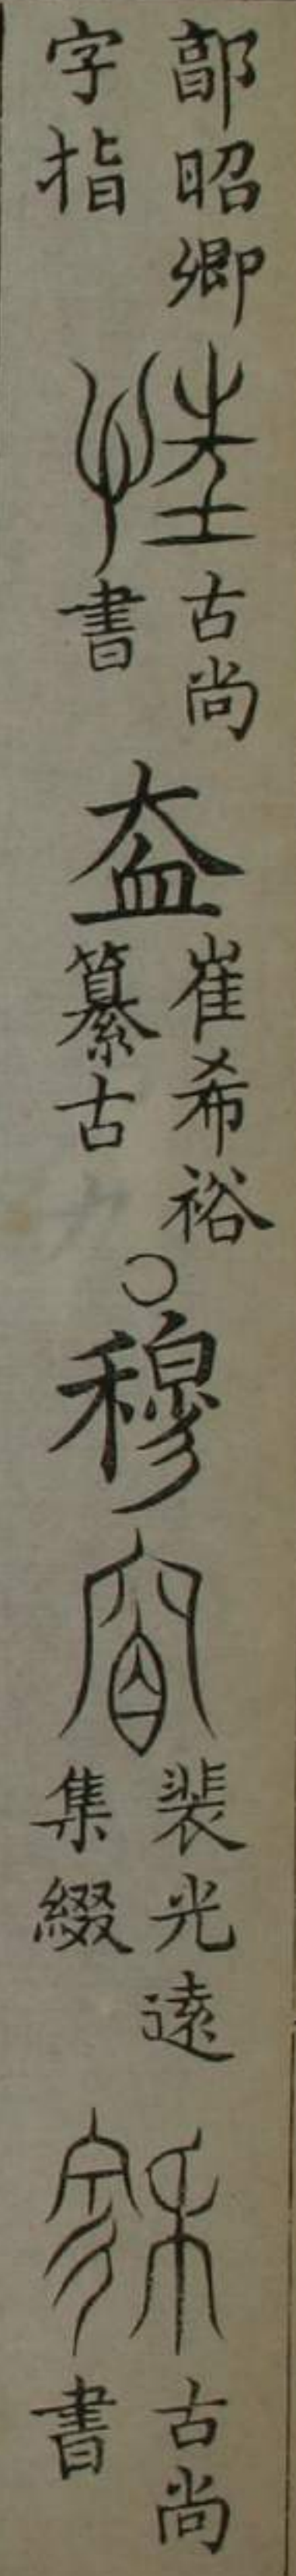 郚昭卿
字指
古尚
書
盇
崔希裕
纂古
○穆
裴光遠
集綴
古尚
書